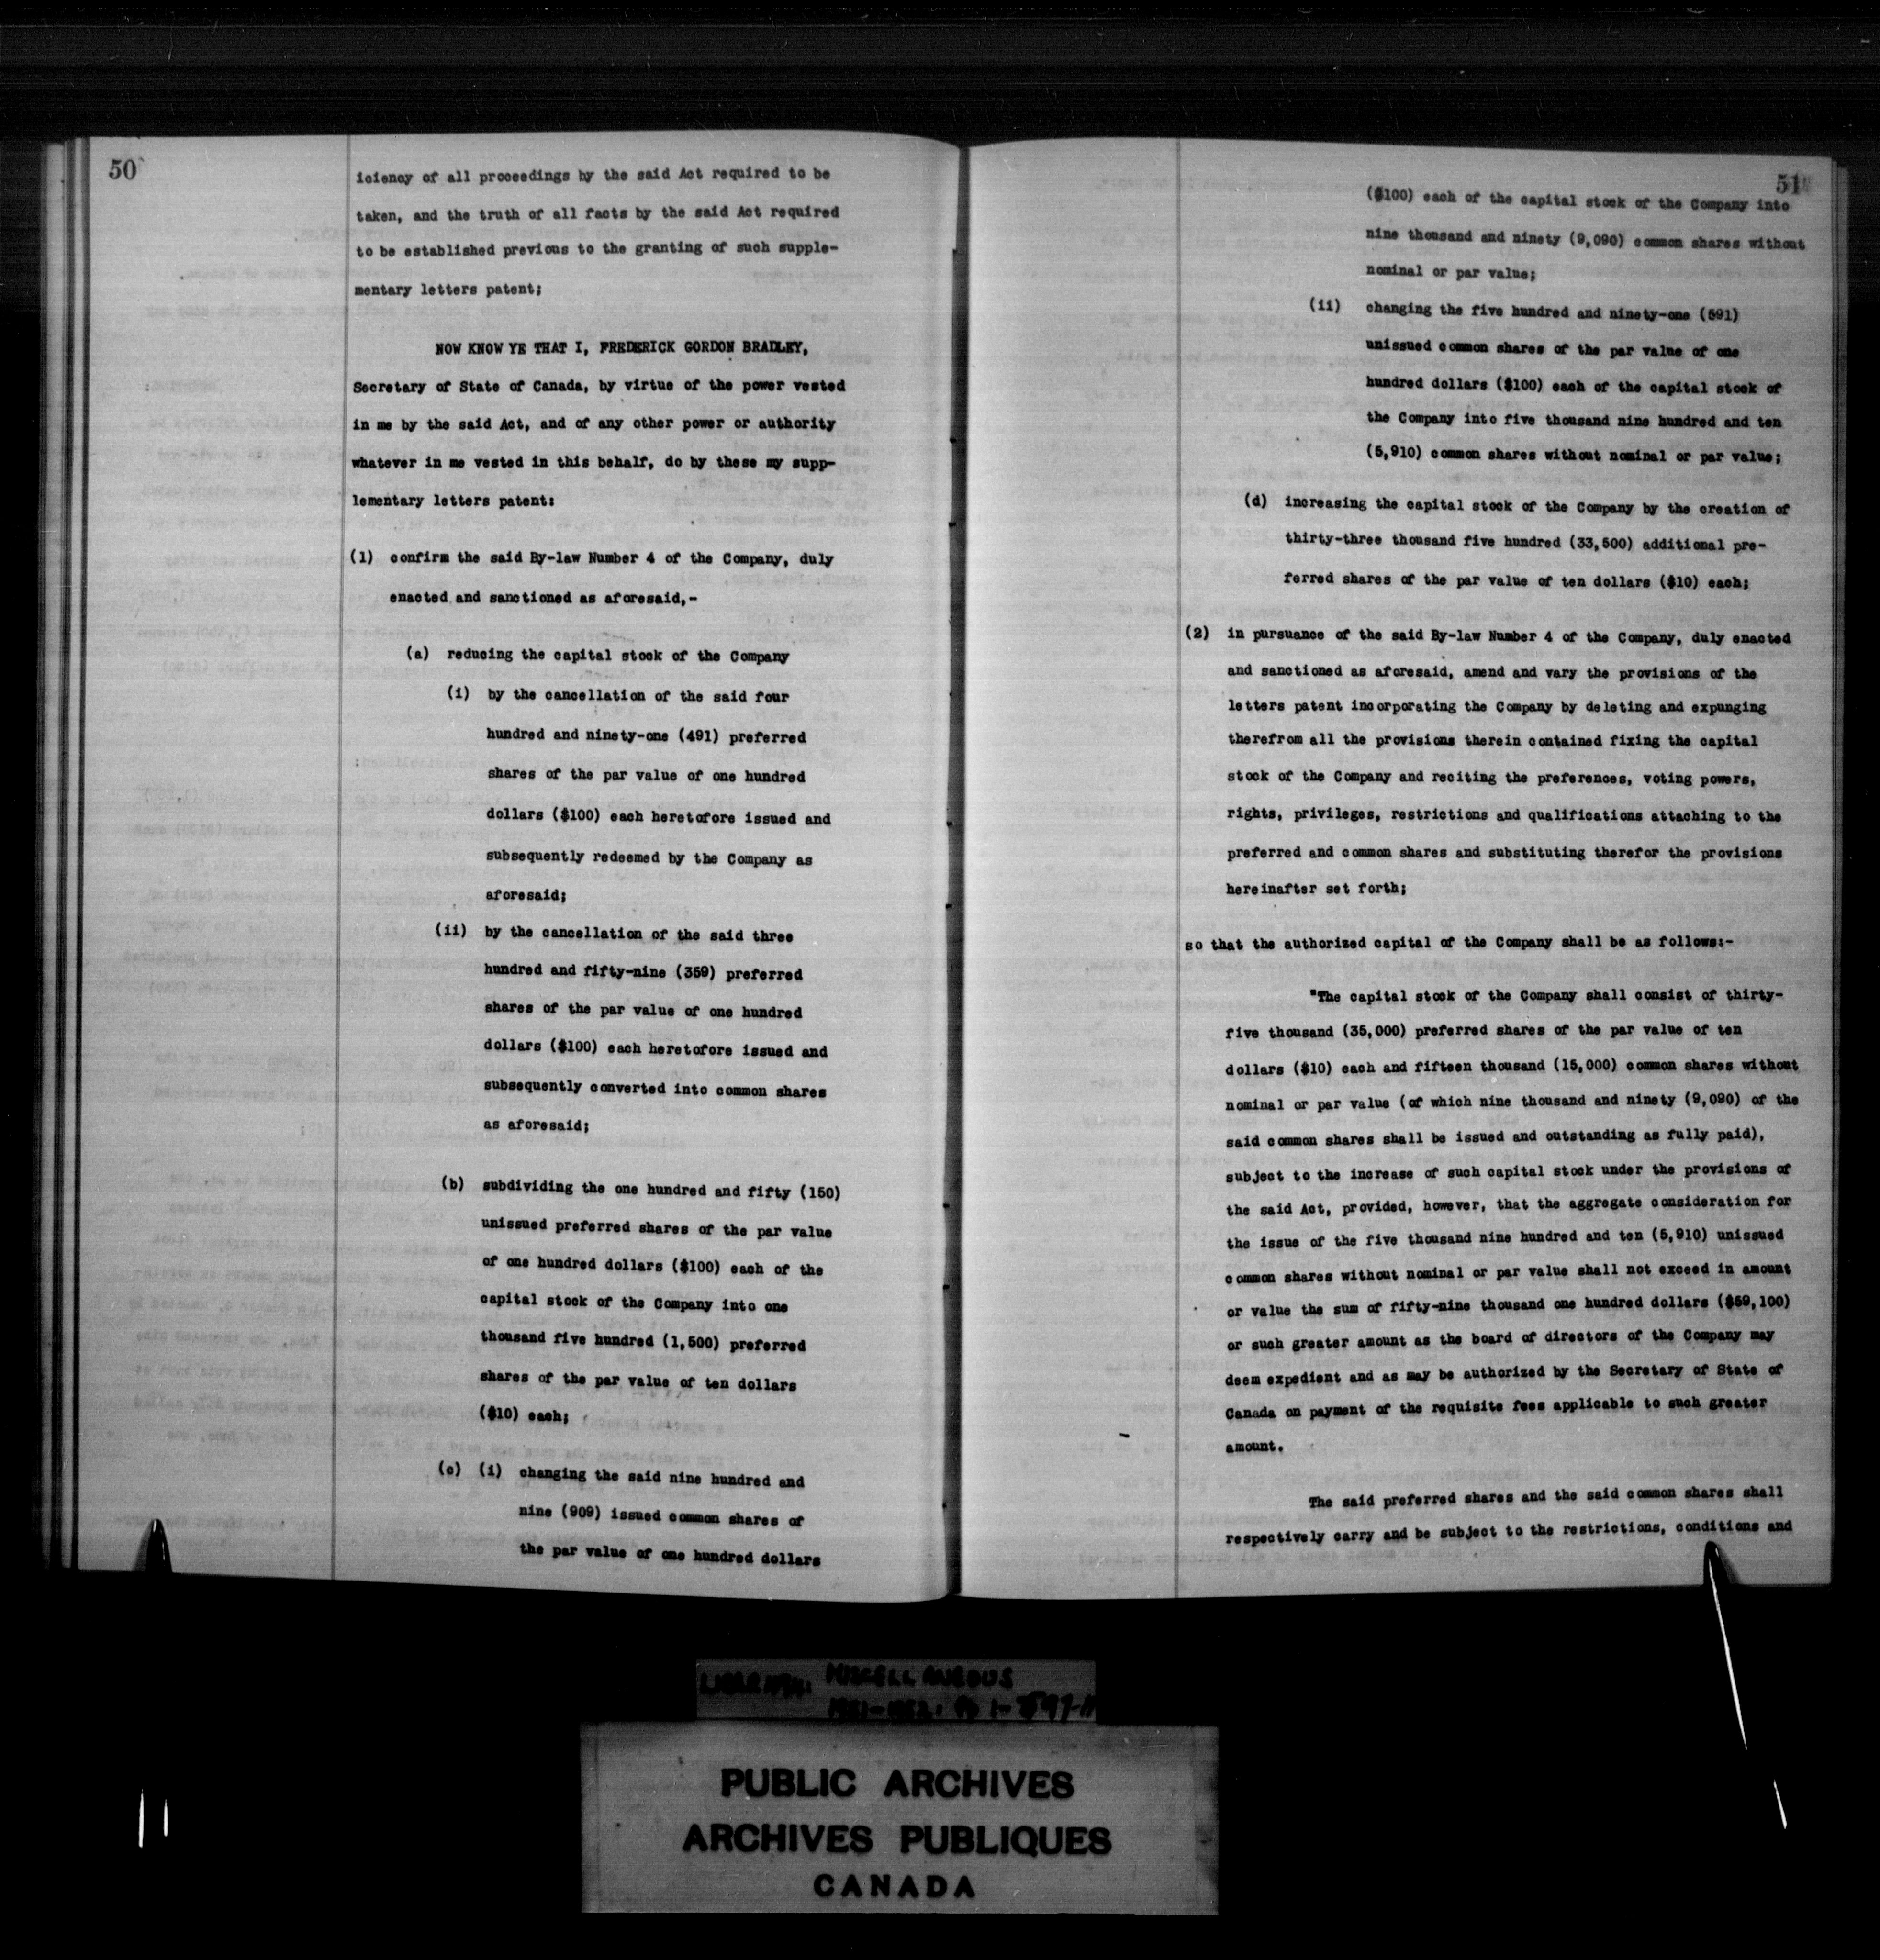 50
iciency of all proceedings by the said Act required to be
taken, and the truth of all facts by the said Act required
to be established previous to the granting of such supple-
mentary letters patent;
NOW KNOW YE THAT I, FREDERICK GORDON BRADLEY,
Secretary of State of Canada, by virtue of the power vested
in me by the said Act, and of any other power or authority
whatever in me vested in this behalf, do by these my supp-
lementary letters patent:
(1) confirm the said By-law Number 4 of the Company, duly
enacted and sanctioned as aforesaid,-
(a) reducing the capital stock of the Company
(i) by the cancellation of the said four
hundred and ninety-one (491) preferred
shares of the par value of one hundred
dollars ($100) each heretofore issued and
subsequently redeemed by the Company as
aforesaid;
(ii) by the cancellation of the said three
hundred and fifty-nine (359) preferred
shares of the par value of one hundred
dollars ($100) each heretofore issued and
subsequently converted into common shares
as aforesaid;
(b) subdividing the one hundred and fifty (150)
unissued preferred shares of the par value
of one hundred dollars ($100) each of the
capital stock of the Company into one
thousand five hundred (1,500) preferred
shares of the par value of ten dollars
($10) each;
(c) (i) changing the said nine hundred and
nine (909) issued common shares of
the par value of one hundred dollars
51
($100) each of the capital stock of the Company into
nine thousand and ninety (9,090) common shares without
nominal or par value;
(ii) changing the five hundred and ninety-one (591)
unissued common shares of the par value of one
hundred dollars ($100) each of the capital stock of
the Company into five thousand nine hundred and ten
(5,910) common shares without nominal or par value;
(d) increasing the capital stock of the Company by the creation of
thirty-three thousand five hundred (33,500) additional pre-
ferred shares of the par value of ten dollars ($10) each;
(2) in pursuance of the said By-law Number 4 of the Company, duly enacted
and sanctioned as aforesaid, amend and vary the provisions of the
letters patent incorporating the Company by deleting and expunging
therefrom all the provisions therein contained fixing the capital
stock of the Company and reciting the preferences, voting powers,
rights, privileges, restrictions and qualifications attaching to the
preferred and common shares and substituting therefor the provisions
hereinafter set forth;
so that the authorized capital of the Company shall be as follows:-
"The capital stock of the Company shall consist of thirty-
five thousand (35,000) preferred shares of the par value of ten
dollars ($10) each and fifteen thousand (15,000) common shares without
nominal or par value (of which nine thousand and ninety (9,090) of the
said common shares shall be issued and outstanding as fully paid),
subject to the increase of such capital stock under the provisions of
the said Act, provided, however, that the aggregate consideration for
the issue of the five thousand nine hundred and ten (5,910) unissued
common shares without nominal or par value shall not exceed in amount
or value the sum of fifty-nine thousand one hundred dollars ($59,100)
or such greater amount as the board of directors of the Company may
deem expedient and as may be authorized by the Secretary of State of
Canada on payment of the requisite fees applicable to such greater
amount.
The said preferred shares and the said common shares shall
respectively carry and be subject to the restrictions, conditions and
MISCELLANEOUS
1951-1952:
PUBLIC ARCHIVES
ARCHIVES PUBLIQUES
CANADA